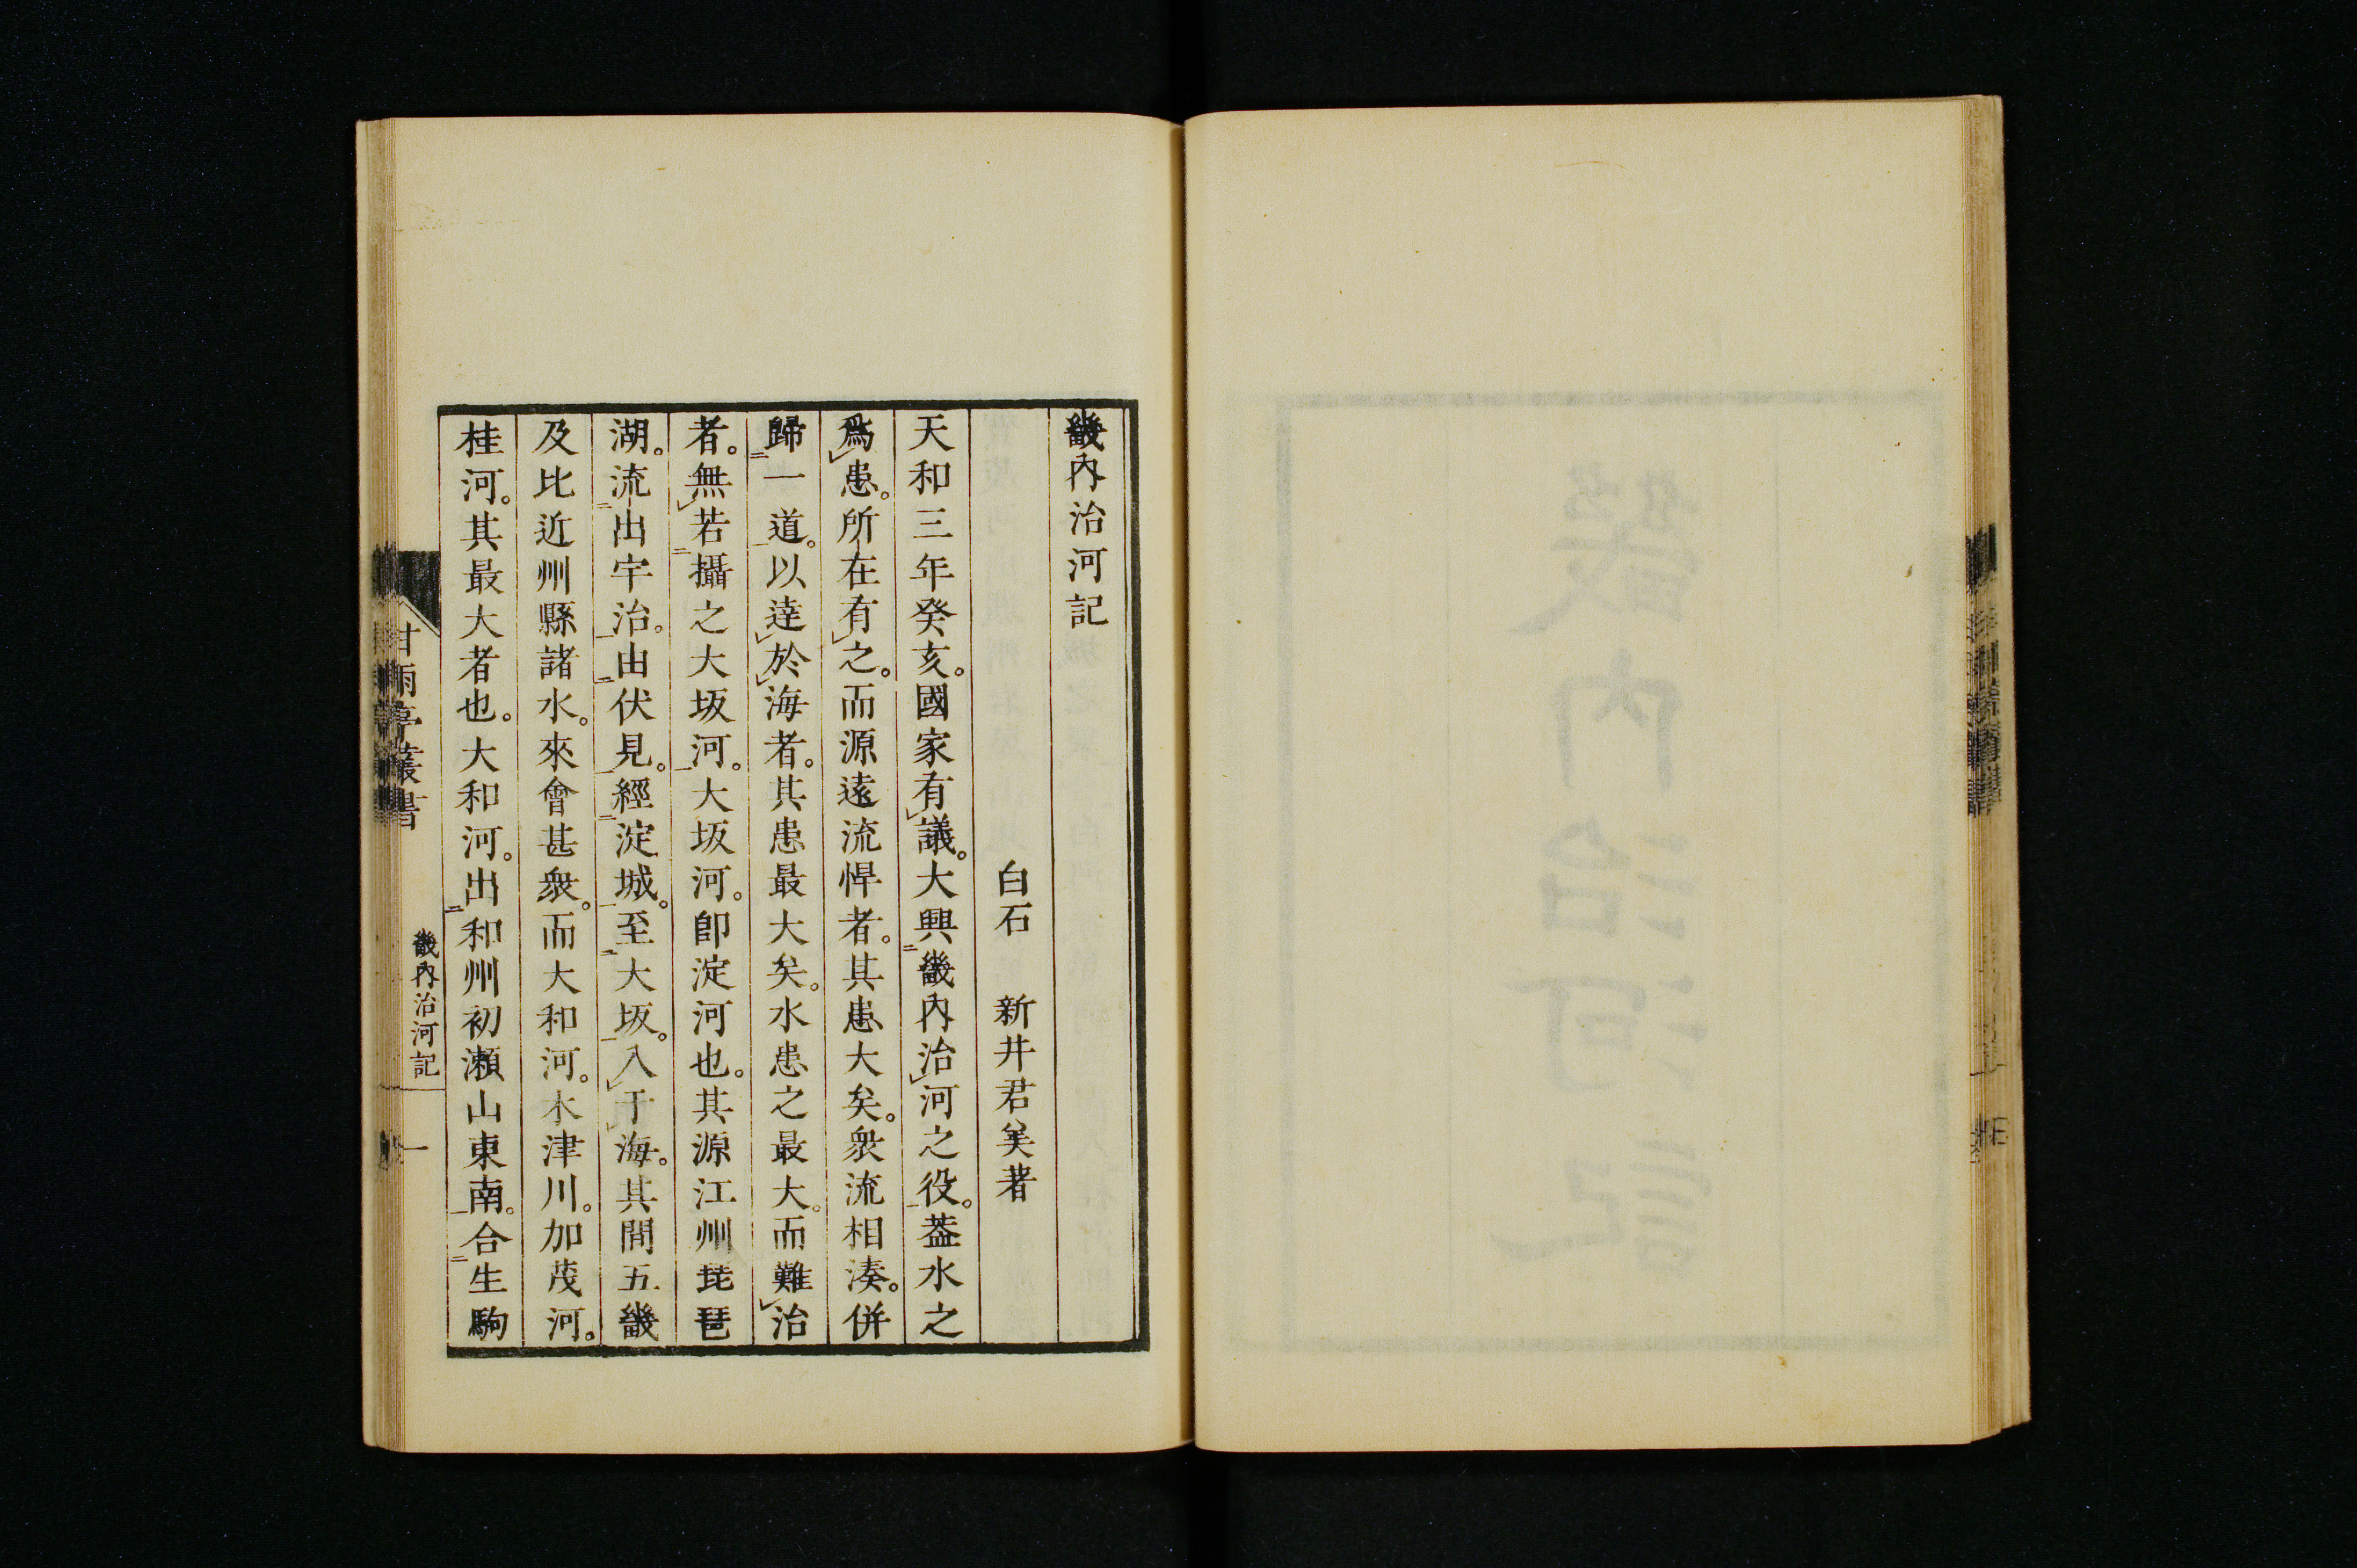 畿內治河記
白石 新井君美著
天和三年癸亥。國家有議。大興畿內治河之役。葢水之
爲患。所在有之。而源遠流悍者。其患大矣。衆流相湊。併
歸一道。以達於海者。其患最大矣。水患之最大。而難治
者。無若攝之大坂河。大坂河。卽淀河也。其源江州琵琶
湖。流出宇治。由伏見。經淀城。至大坂。入于海。其間五畿
及比近州縣諸水。來會甚衆。而大和河。木津川。加茂河。
桂河。其最大者也。大和河。出和州初瀨山東南。合生駒
甘雨亭叢書
畿內治河記
一